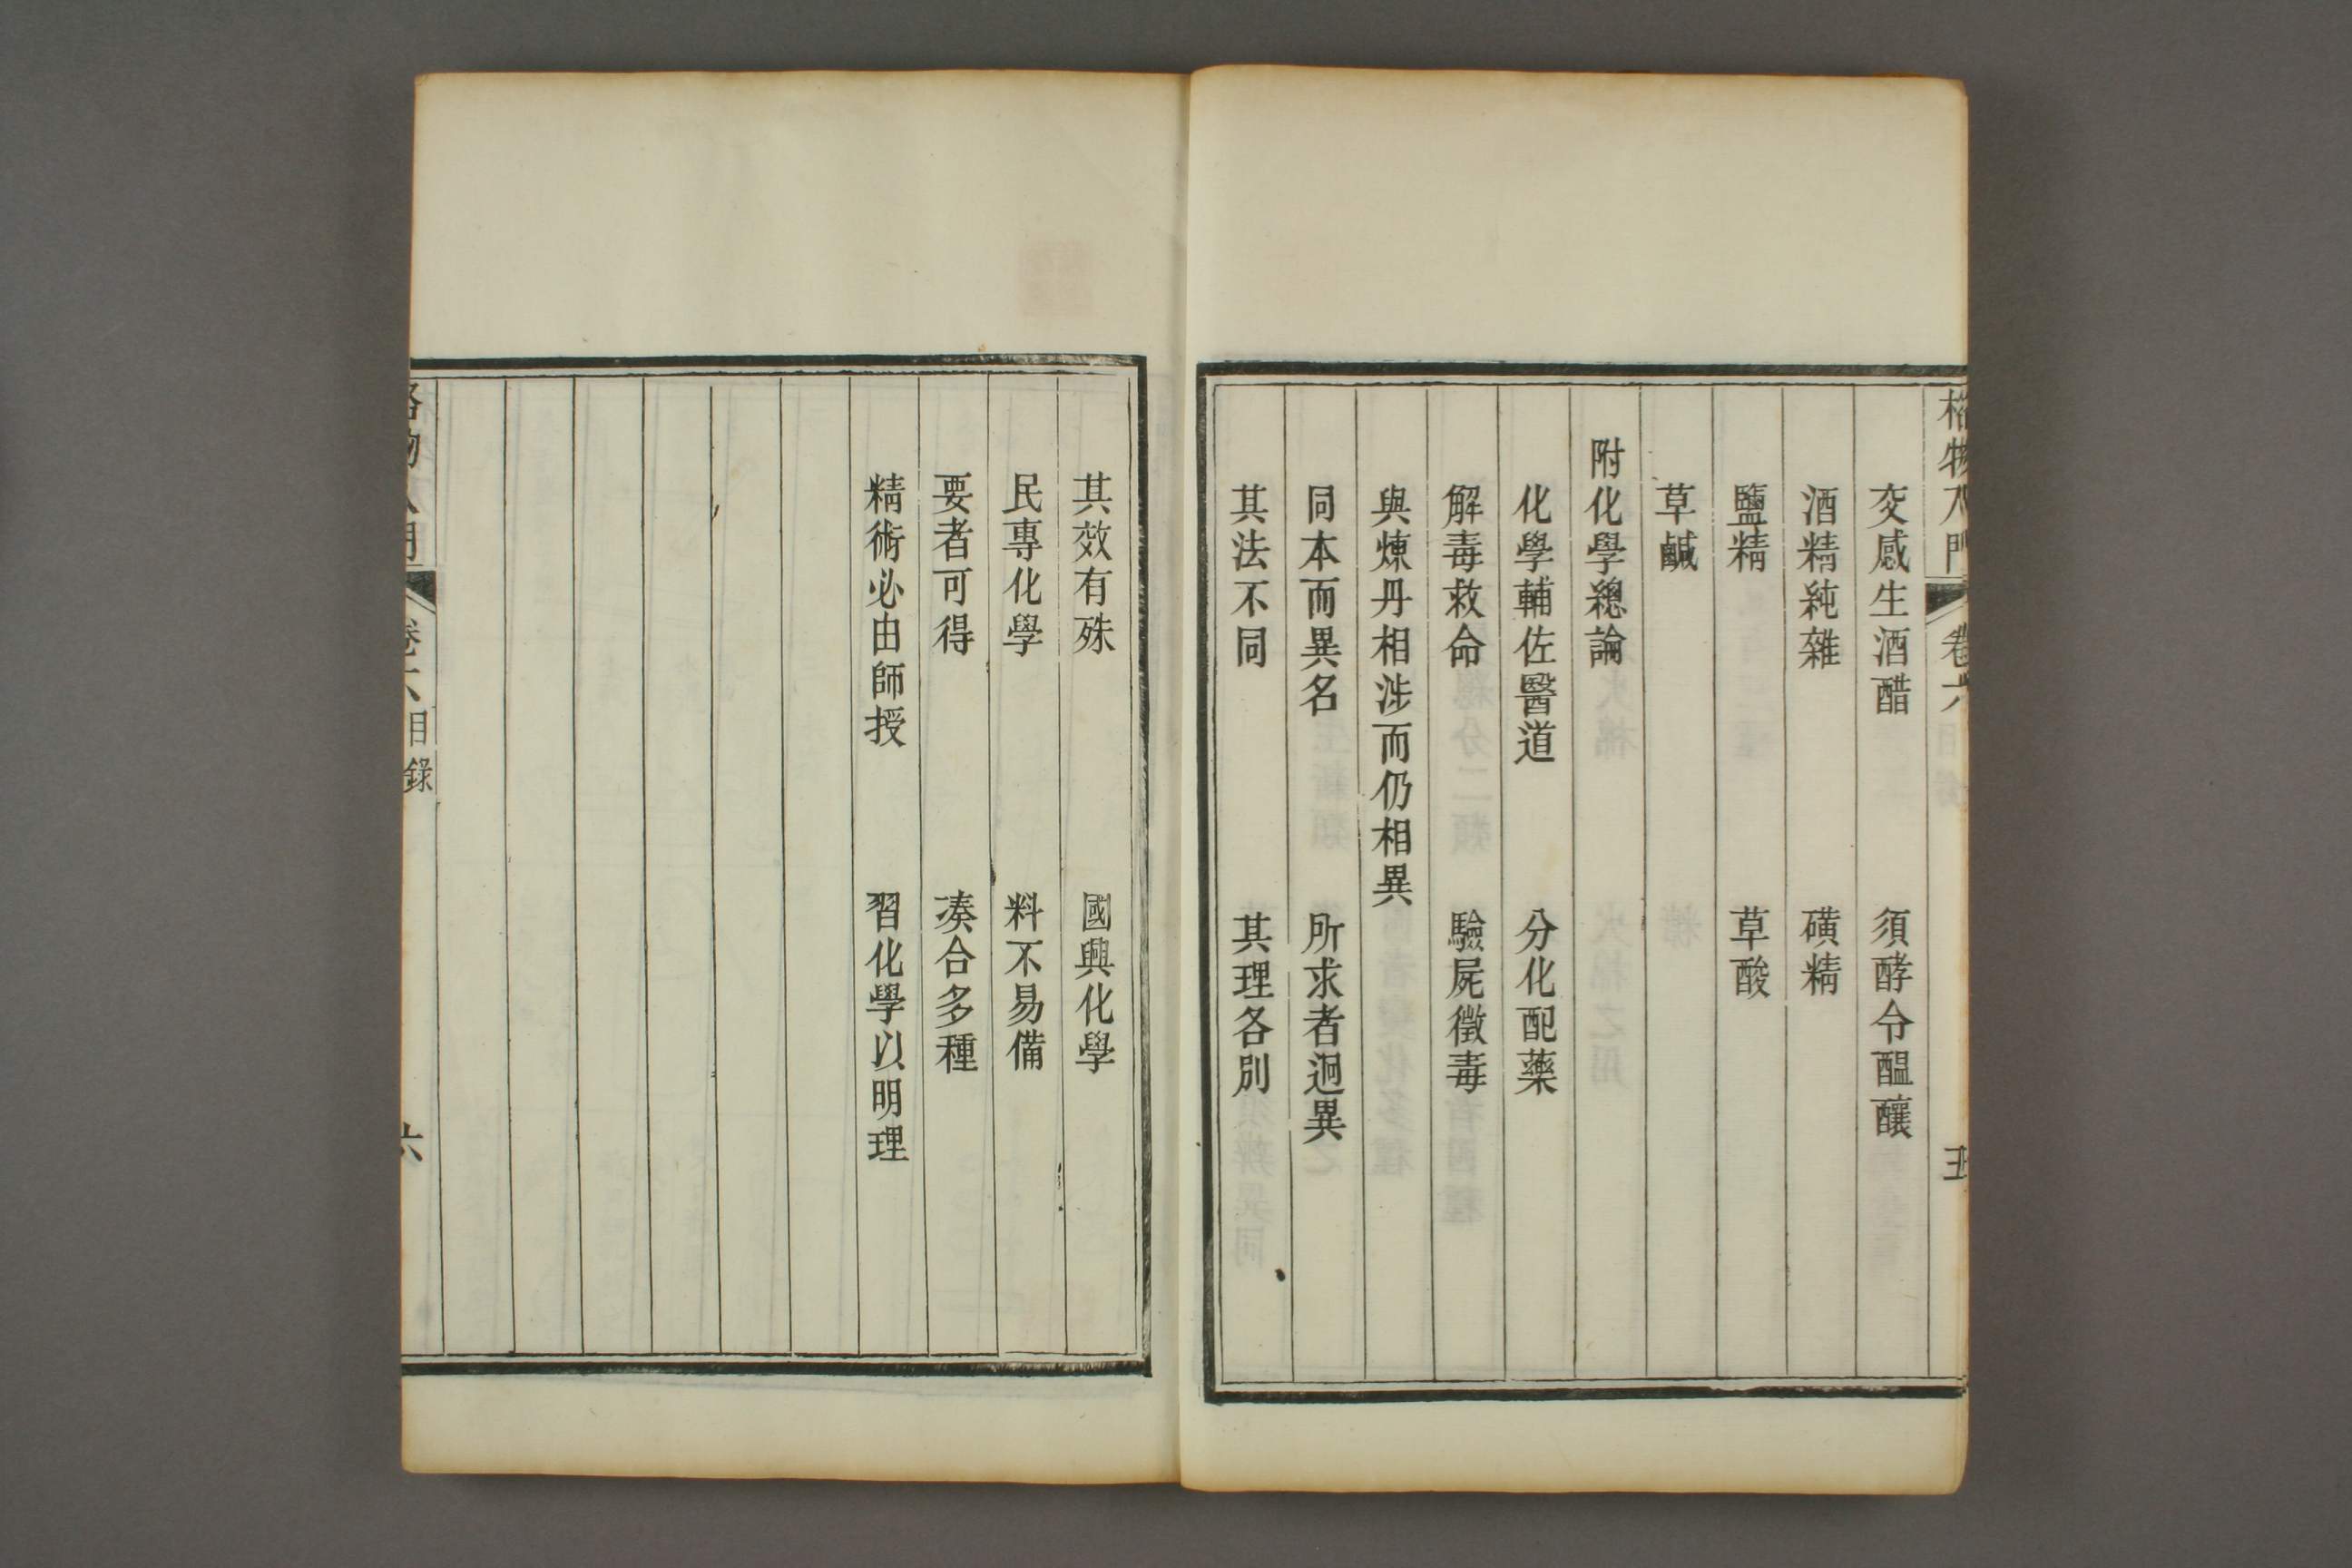 格物入門 卷六 五
交感生酒醋 須酵令醞釀
酒精純雜 磺精
鹽精 草酸
草鹹
附化學總論
化學輔佐醫道 分化配藥
解毒救命 驗屍徵毒
與煉丹相涉而仍相異
同本而異名 所求者迥異
其法不同 其理各別
其效有殊 國興化學
民專化學 料不易備
要者可得 湊合多種
精術必由師授 習化學以明理
格物入門 卷六 目錄 六